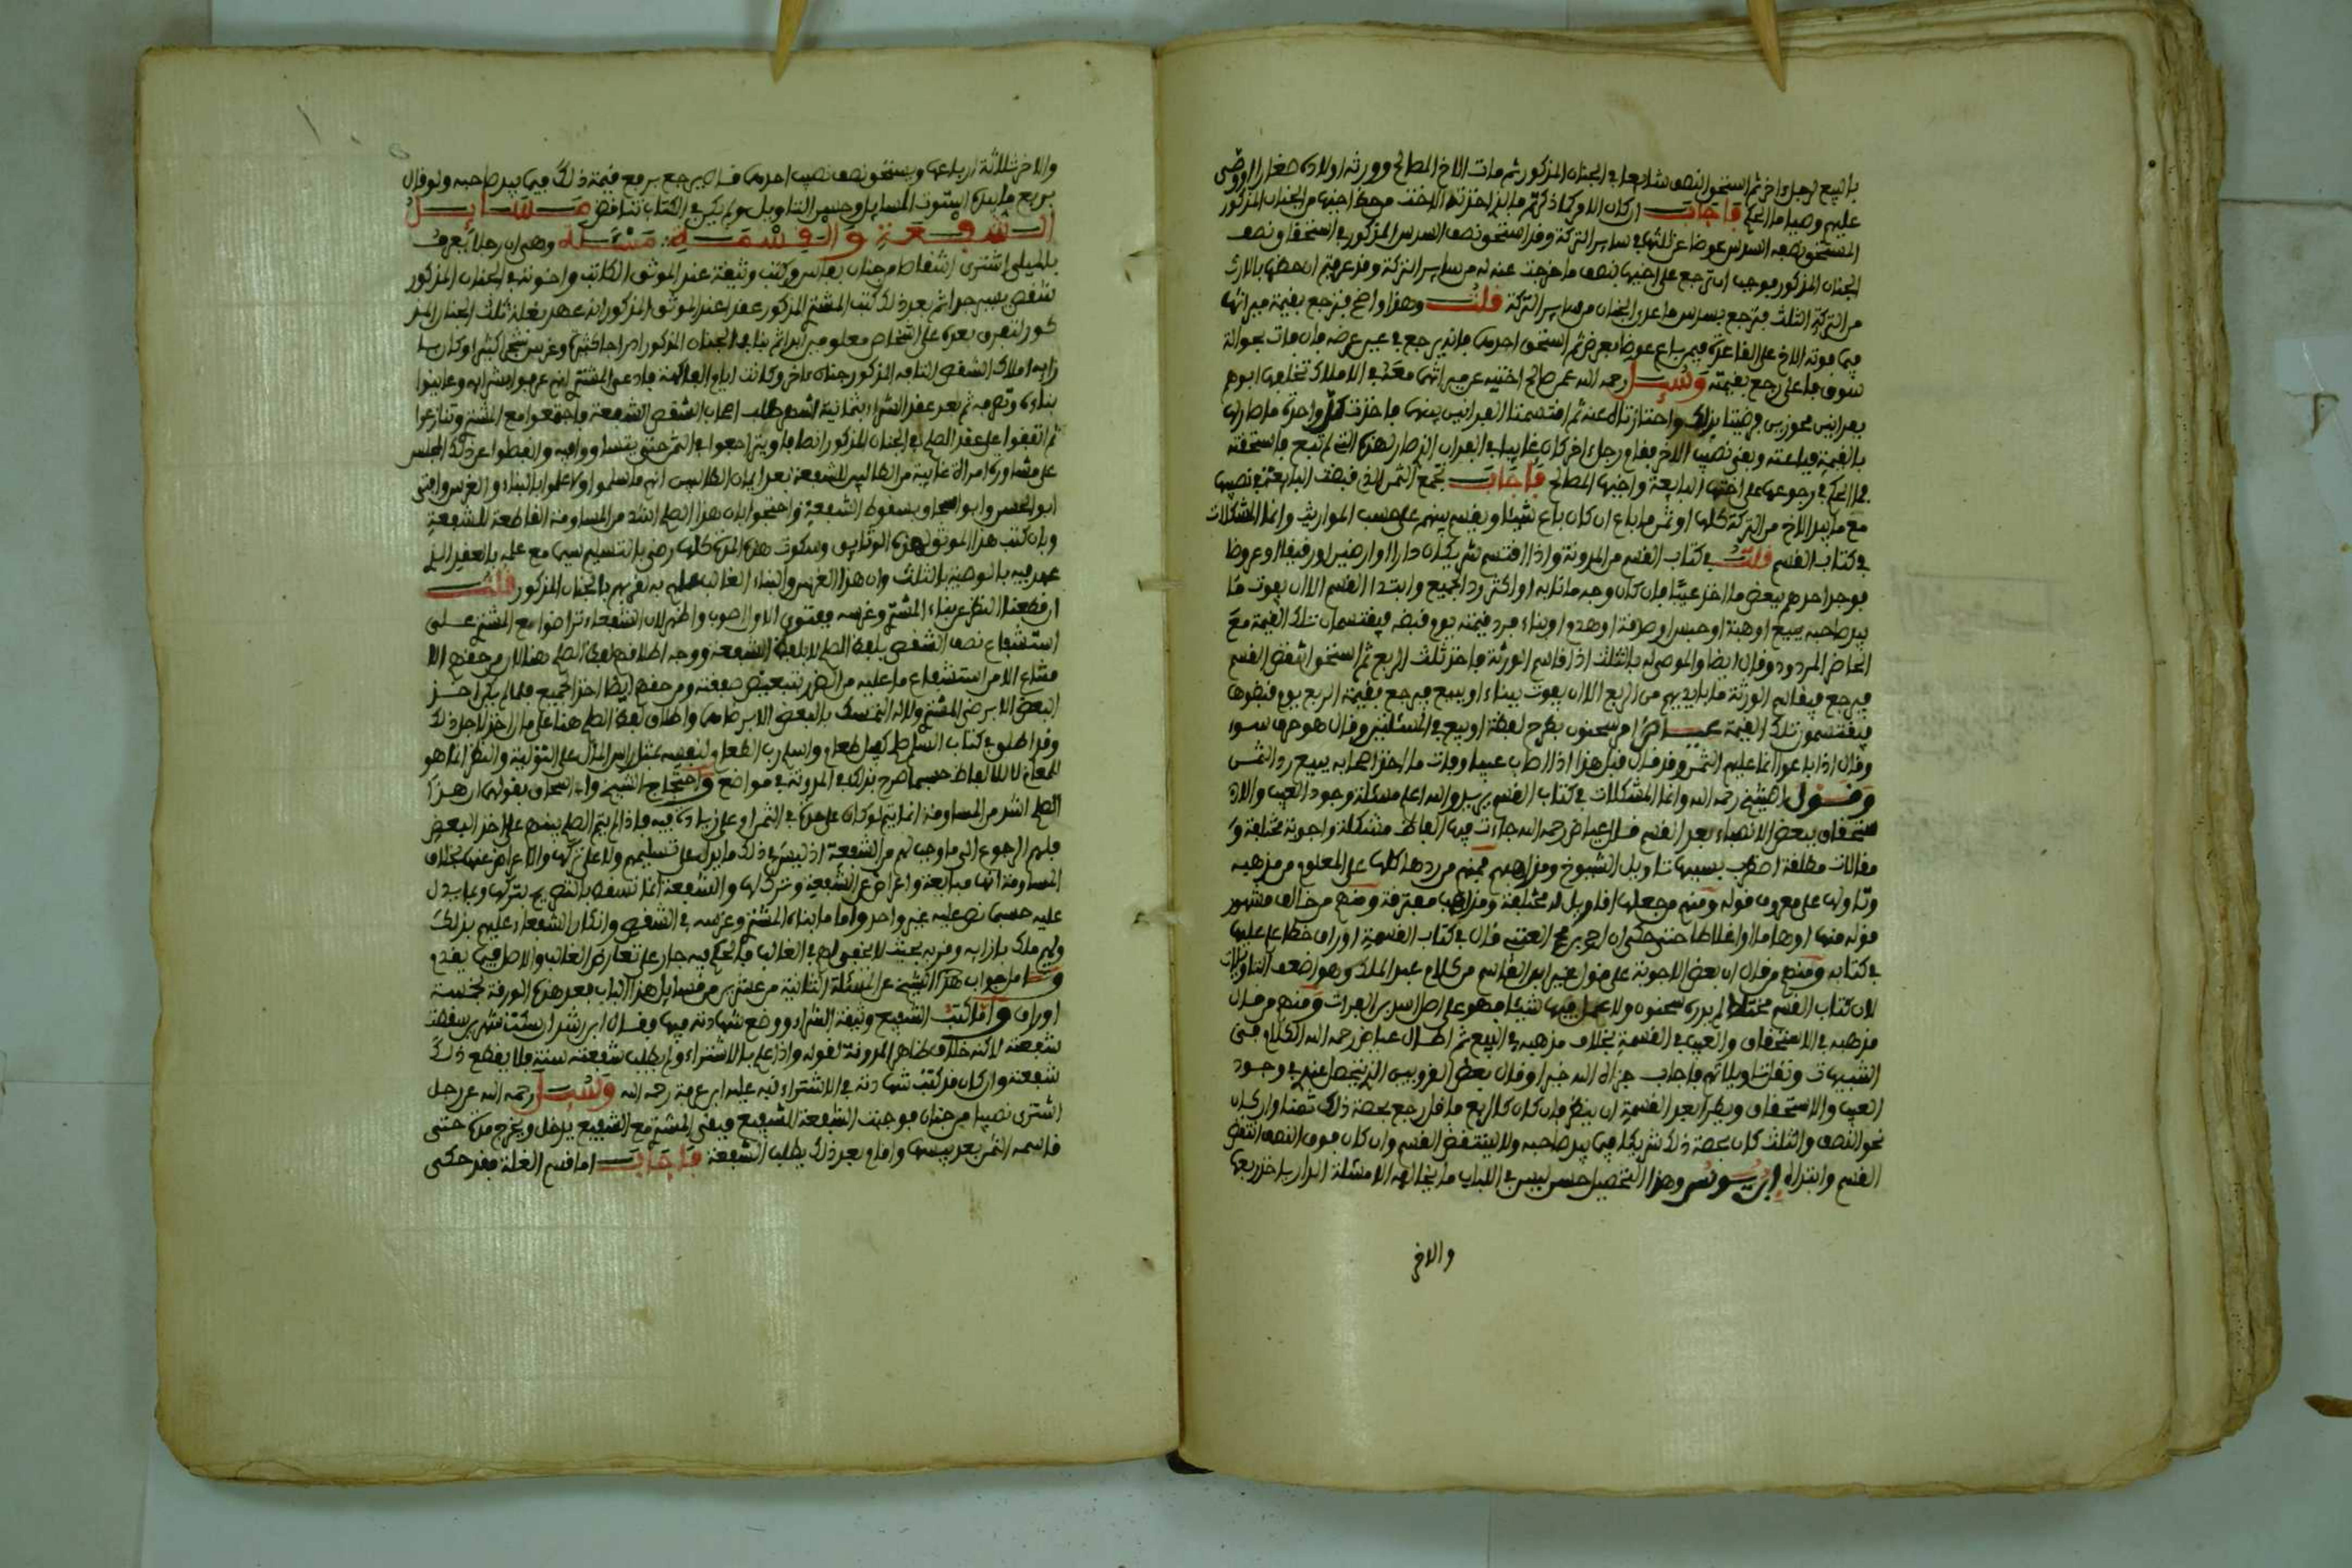 بالبيع لرجل اخر ثم استحق النصف شائعا في الجنان المذكور ثم مات الاخ المصالح وورثه اولاده صغارا اوصى
عليهم وصيا ما الحكم فاجاب ان كان الامر كما ذكرتم فان الذي اخذته الاخت من حظ اختها من الجنان المذكور
المستحق نصفه السدس عوضا عن الثلث في سائر التركة وقد استحق نصف السدس المذكور في استحقاق نصف
الجنان المذكور فوجب ان ترجع على اختها بنصف ما خرجت عنه له من سائر التركة وقد عرفتم ان حظها بالارث
من التركة الثلث فترجع بسدس ما عدى الجنان من سائر التركة قلت وهذا واضح فترجع بقيمة ميراثها
فيما فوته الاخ على القاعدة فيمن باع عوضا بعرض ثم استحق احدهما فانه يرجع في عين عرضه فان فات بحوالة
سوق فاعلى رجع بقيمته وسئل رحمه الله عمن صالح اختيه عن ميراثهما معه في الاملاك تخلفها ابوهم
بفدانين محوزين فرضيتا بذلك واحتازتاه عنه ثم اقتسمتا الفدانين بينهما فاخذت كل واحدة ما صار لها
بالقيمة فباعته وبقي نصيب الاخر فقام رجل اخر كان غايبا في الفدان الذي صار لهذه التي لم تبع فاستحقه
فما الحكم في رجوعها على اختها البايعة واخيها المصالح فاجاب تجمع الثمن الذي قبضت البايعة في نصيبها
مع ما بيد الاخ من التركة كلها او ثمن ما باع ان كان باع شيئا ويقسم بينهم على حسب المواريث وانما المشكلات
في كتاب القسم قلت في كتاب القسم من المدونة واذا اقتسم شريكان دارا او ارضين او رقيقا او عروضا
فوجد احدهم ببعض ما اخذ عيبا فان كان وجه ما نابه او اكثر رد الجميع وابتدا القسم الا ان يفوت ما
بيد صاحبه ببيع او هبة او حبس او صدقة او هدم او بناء فيرد قيمته يوم قبضه فيقتسمان تلك القيمة مع
الحاضر المردود وقال ايضا والموصى له بالثلث اذا قاسم الورثة فاخذ ثلث الربع ثم استحق بعض القسم
فيرجع فيقاسم الورثة ما بايديهم من الربع الا ان يفوت ببناء او ببيع فيرجع بقيمة الربع يوم قبضوها
فيقتسمون تلك القيمة عياض امر سحنون بطرح لفظة او بيع في المسئلتين وقال هو حرف سوء
وقال اذا باعوا انما عليهم الثمن وقد قال قبل هذا اذا اصاب عيبا وفات ما اخذ اصحابه ببيع رد الثمن
وقول الشيخ رحمه الله وانما المشكلات في كتاب القسم يريد والله اعلم مسئلة وجود العيب والاس
تحقاق ببعض الانصباء بعد القسم قال عياض رحمه الله جاءت فيها الفاظ مشكلة واجوبة مختلفة و
مقالات مطلقة اضطرب بسببها تاويل الشيوخ ومذاهبهم فمنهم من ردها كلها على المعلوم من مذهبه
وتاولها على معروف قوله ومنهم من جعلها اقاويل له مختلفة ومذاهب مفترقة ومنهم من خالف مشهور
قوله منها اوهاما او اغلاطا حتى حكى ان احمد بن محمد العتبي قال في كتاب القسمة اوراق خطا علم عليها
في كتابه ومنهم من قال ان بعض الاجوبة على قول غير ابن القاسم من كلام عبد الملك وهو اضعف التاويلات
لان كتاب القسم مختلط لم يدره سحنون ولا عمل فيها شيئا فهو على اصل اسد بن الفرات ومنهم من قال
مذهبه في الاستحقاق والعيب في القسمة بخلاف مذهبه في البيع ثم اطال عياض رحمه الله الكلام في
التشبيهات وتقات تاويلاتهم فاجاب جزاه الله خيرا وقال بعض القرويين الذي يتحصل عندي في وجود
العيب والاستحقاق ويطرا بعد القسمة ان ينظر فان كان كالربع فاقل رجع بحصة ذلك ثمنا وان كان
نحو النصف والثلث كان بحصة ذلك شريكا فيما بيد صاحبه ولا ينتقض القسم وان كان فوق النصف انتقض
القسم وابتداه ابن يونس وهذا التحصيل حسن ليس في الكتاب ما يخالفه الا مسئلة الدار ياخذ ربعها
والاخر
والاخر ثلاثة ارباعها ويستحق نصف نصيب احدهما فانه يرجع بربع قيمة ذلك فيما بيد صاحبه ولو قال
بربع ما بيده استوت المسايل وحسن التاويل ولم يكن في الكتاب تناقض مسايل
الشفعة والقسمة مسئلة وهي ان رجلا يعرف
بالميلي اشترى اشقاصا من جنان بفاس وكتب وثيقة عند الموثق الكاتب واخوته في الجنان المذكور
شقص بسبب جراثم بعد ذلك كتب المشتري المذكور عقدا عند الموثق المذكور انه عهد بغلة ثلث الجنان المذ
كور لتفرق بعده على اشخاص معلومين ابدا ثم بنا في الجنان المذكور ابراجا كثيرة وغرس شجرا كثيرا وكان بها
زايه املاك الشقص التافه المذكور جنان ءاخر وكانت ايام الفاكهة فادعى المشتري انهم عرفوا بشرايه وعاينوا
بناءه وتصرفه ثم بعد عقد الشراء بثمانية اشهر طلب اصحاب الشقص الشفعة فاجتمعوا مع المشتري وتنازعوا
ثم اتفقوا على عقد الصلح في الجنان المذكور انصافا ويتراجعوا في الثمر حتى يتساووا فيه وانفصلوا عن ذلك المجلس
على مشاورة امراة غايبة من الطالبين للشفعة بعد ايمان الطالبين انهم ما سلموا ولا علموا بالبناء والغرس وافتى
ابو الحسن وابو الضياء وبسقوط الشفعة واحتجوا بان هذا الصلح اشد من المساومة القاطعة للشفعة
وبان كتب هذا الموثق لهذه الوثايق وسكوت هذه المدة كلها رضى بالتسليم سيما مع علمه بالعقد الذي
عهد فيه بالوصية بالثلث وان هذا الغرس والبناء الغالب علمهم به لقربهم بالجنان المذكور قلت
ان قطعنا النظر عن بناء المشتري وغرسه ففتوى الاول اصوب واظهر لان الشفعاء تراضوا مع المشتري على
استشفاع نصف الشقص بلفظ الصلح لا بلفظ الشفعة ووجه اطلاقهم لفظ الصلح هنا لان من حقهم الا
متناع الا من استشفاع ما عليه من الضرر بتبعيض صفقته ومن حقهم ايضا اخذ الجميع فلما لم يكن اخذ
البعض الا برضى المشتري ولا له التمسك بالبعض الا برضاهما واطلاق لفظ الصلح هنا على هذا الاخذ لاجل ذلك
وقد اطلق في كتاب السلم صلح كفيل طعام واسلم رب الطعام لنفسه بمثل راس المال على التولية والنظر انما هو
للمعاني لا للالفاظ حسبما صرح بذلك في المدونة في مواضع واحتجاج الشيخ وابو اسحاق بقوله ان هذا
الصلح اشد من المساومة انما يتم لو كان على هدم في الثمن او على زيادة فيه فاذا لم يتم الصلح بينهم على اخذ البعض
فلهم الرجوع الى ما وجب لهم من الشفعة اذ ليس في ذلك ما يدل على تسليمهم ولا على تركها والاعراض عنها بخلاف
المساومة انها مبايعة واعراض عن الشفعة وترك لها والشفعة انما تسقط بالتصريح بتركها وبما يدل
عليه حسبما نص عليه غير واحد واما ما بناه المشتري وغرسه في الشقص وانكار الشفعاء عليهم بذلك
ولهم ملك بازايه وقربه بحيث لا يخفى لهم في الغالب فالحكم فيه جار على تعارض الغالب والاصل فيما يقدم
وانظر جواب هذا الشيخ عن المسئلة الثانية من عشرين من مسايل هذا الباب بعد هذه الورقة بخمسة
اوراق واذا كتب الشفيع وثيقة الشراء ووضع شهادته فيها فقال ابن رشد ان سكت شهرين سقطت
شفعته لاكنه خلاف ظاهر المدونة لقوله واذا علم بالاشتراء ولم يطلب شفعته سنة فلا يقطع ذلك
شفعته وان كان قد كتب شهادته في الاشتراء نبه عليه ابن عرفة رحمه الله وسئل رحمه الله عن رجل
اشترى نصيبا من جنان فوجبت الشفعة للشفيع فبقي المشتري مع الشفيع يدخل ويخرج مدة حتى
قاسمه الثمر بعد يبسها واقام بعد ذلك يطلب الشفعة فاجاب اما قسم الغلة فقد حكى